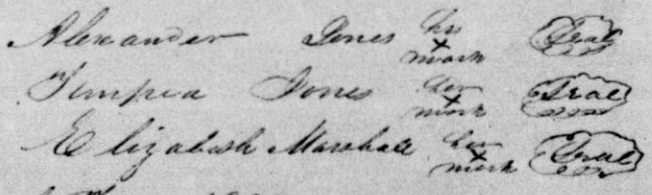 Alexander Jones his x mark Seal
Tempia Jones her x mark Seal
Elizabeth Marshall her x mark Seal